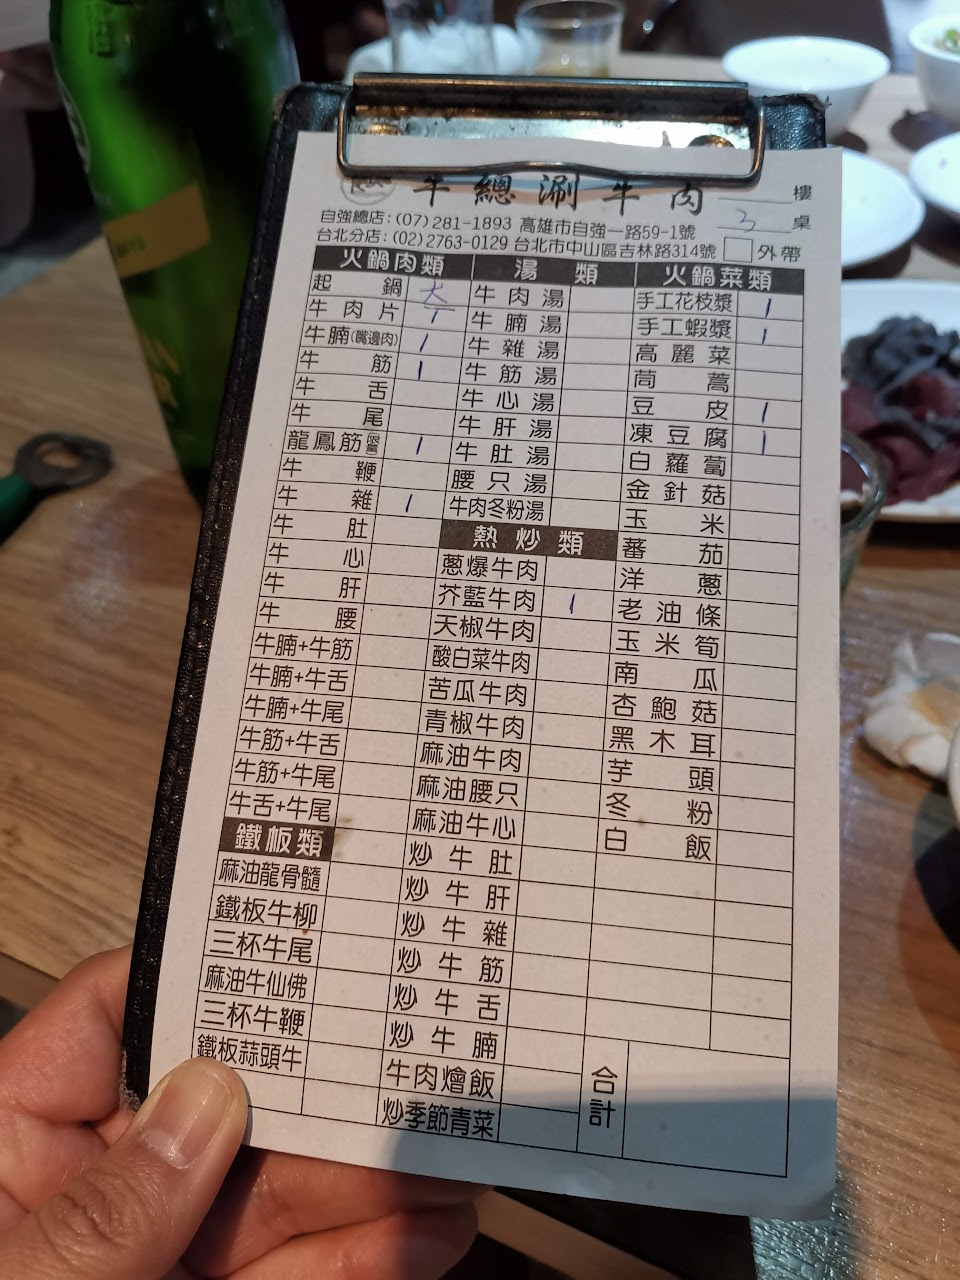 牛總涮牛肉 樓
自強總店:(07)281-1893 高雄市自強一路59-1號 3 桌
台北分店:(02)2763-0129 台北市中山區吉林路314號 外帶
火鍋肉類
起鍋 大
牛肉片
牛腩(嘴邊肉) 1
牛筋 1
牛舌
牛尾
龍鳳筋 1
牛鞭
牛雜 1
牛肚
牛心
牛肝
牛腰
牛腩+牛筋
牛腩+牛舌
牛腩+牛尾
牛筋+牛舌
牛筋+牛尾
牛舌+牛尾
鐵板類
麻油龍骨髓
鐵板牛柳
三杯牛尾
麻油牛仙佛
三杯牛鞭
鐵板蒜頭牛
湯類
牛肉湯
牛腩湯
牛雜湯
牛筋湯
牛心湯
牛肝湯
牛肚湯
腰只湯
牛肉冬粉湯
熱炒類
蔥爆牛肉
芥藍牛肉 1
天椒牛肉
酸白菜牛肉
苦瓜牛肉
青椒牛肉
麻油牛肉
麻油腰只
麻油牛心
炒牛肚
炒牛肝
炒牛雜
炒牛筋
炒牛舌
炒牛腩
牛肉燴飯
炒季節青菜
火鍋菜類
手工花枝漿 1
手工蝦漿 1
高麗菜
茼蒿
豆皮 1
凍豆腐 1
白蘿蔔
金針菇
玉米
蕃茄
洋蔥
老油條
玉米筍
南瓜
杏鮑菇
黑木耳
芋頭
冬粉
白飯
合計